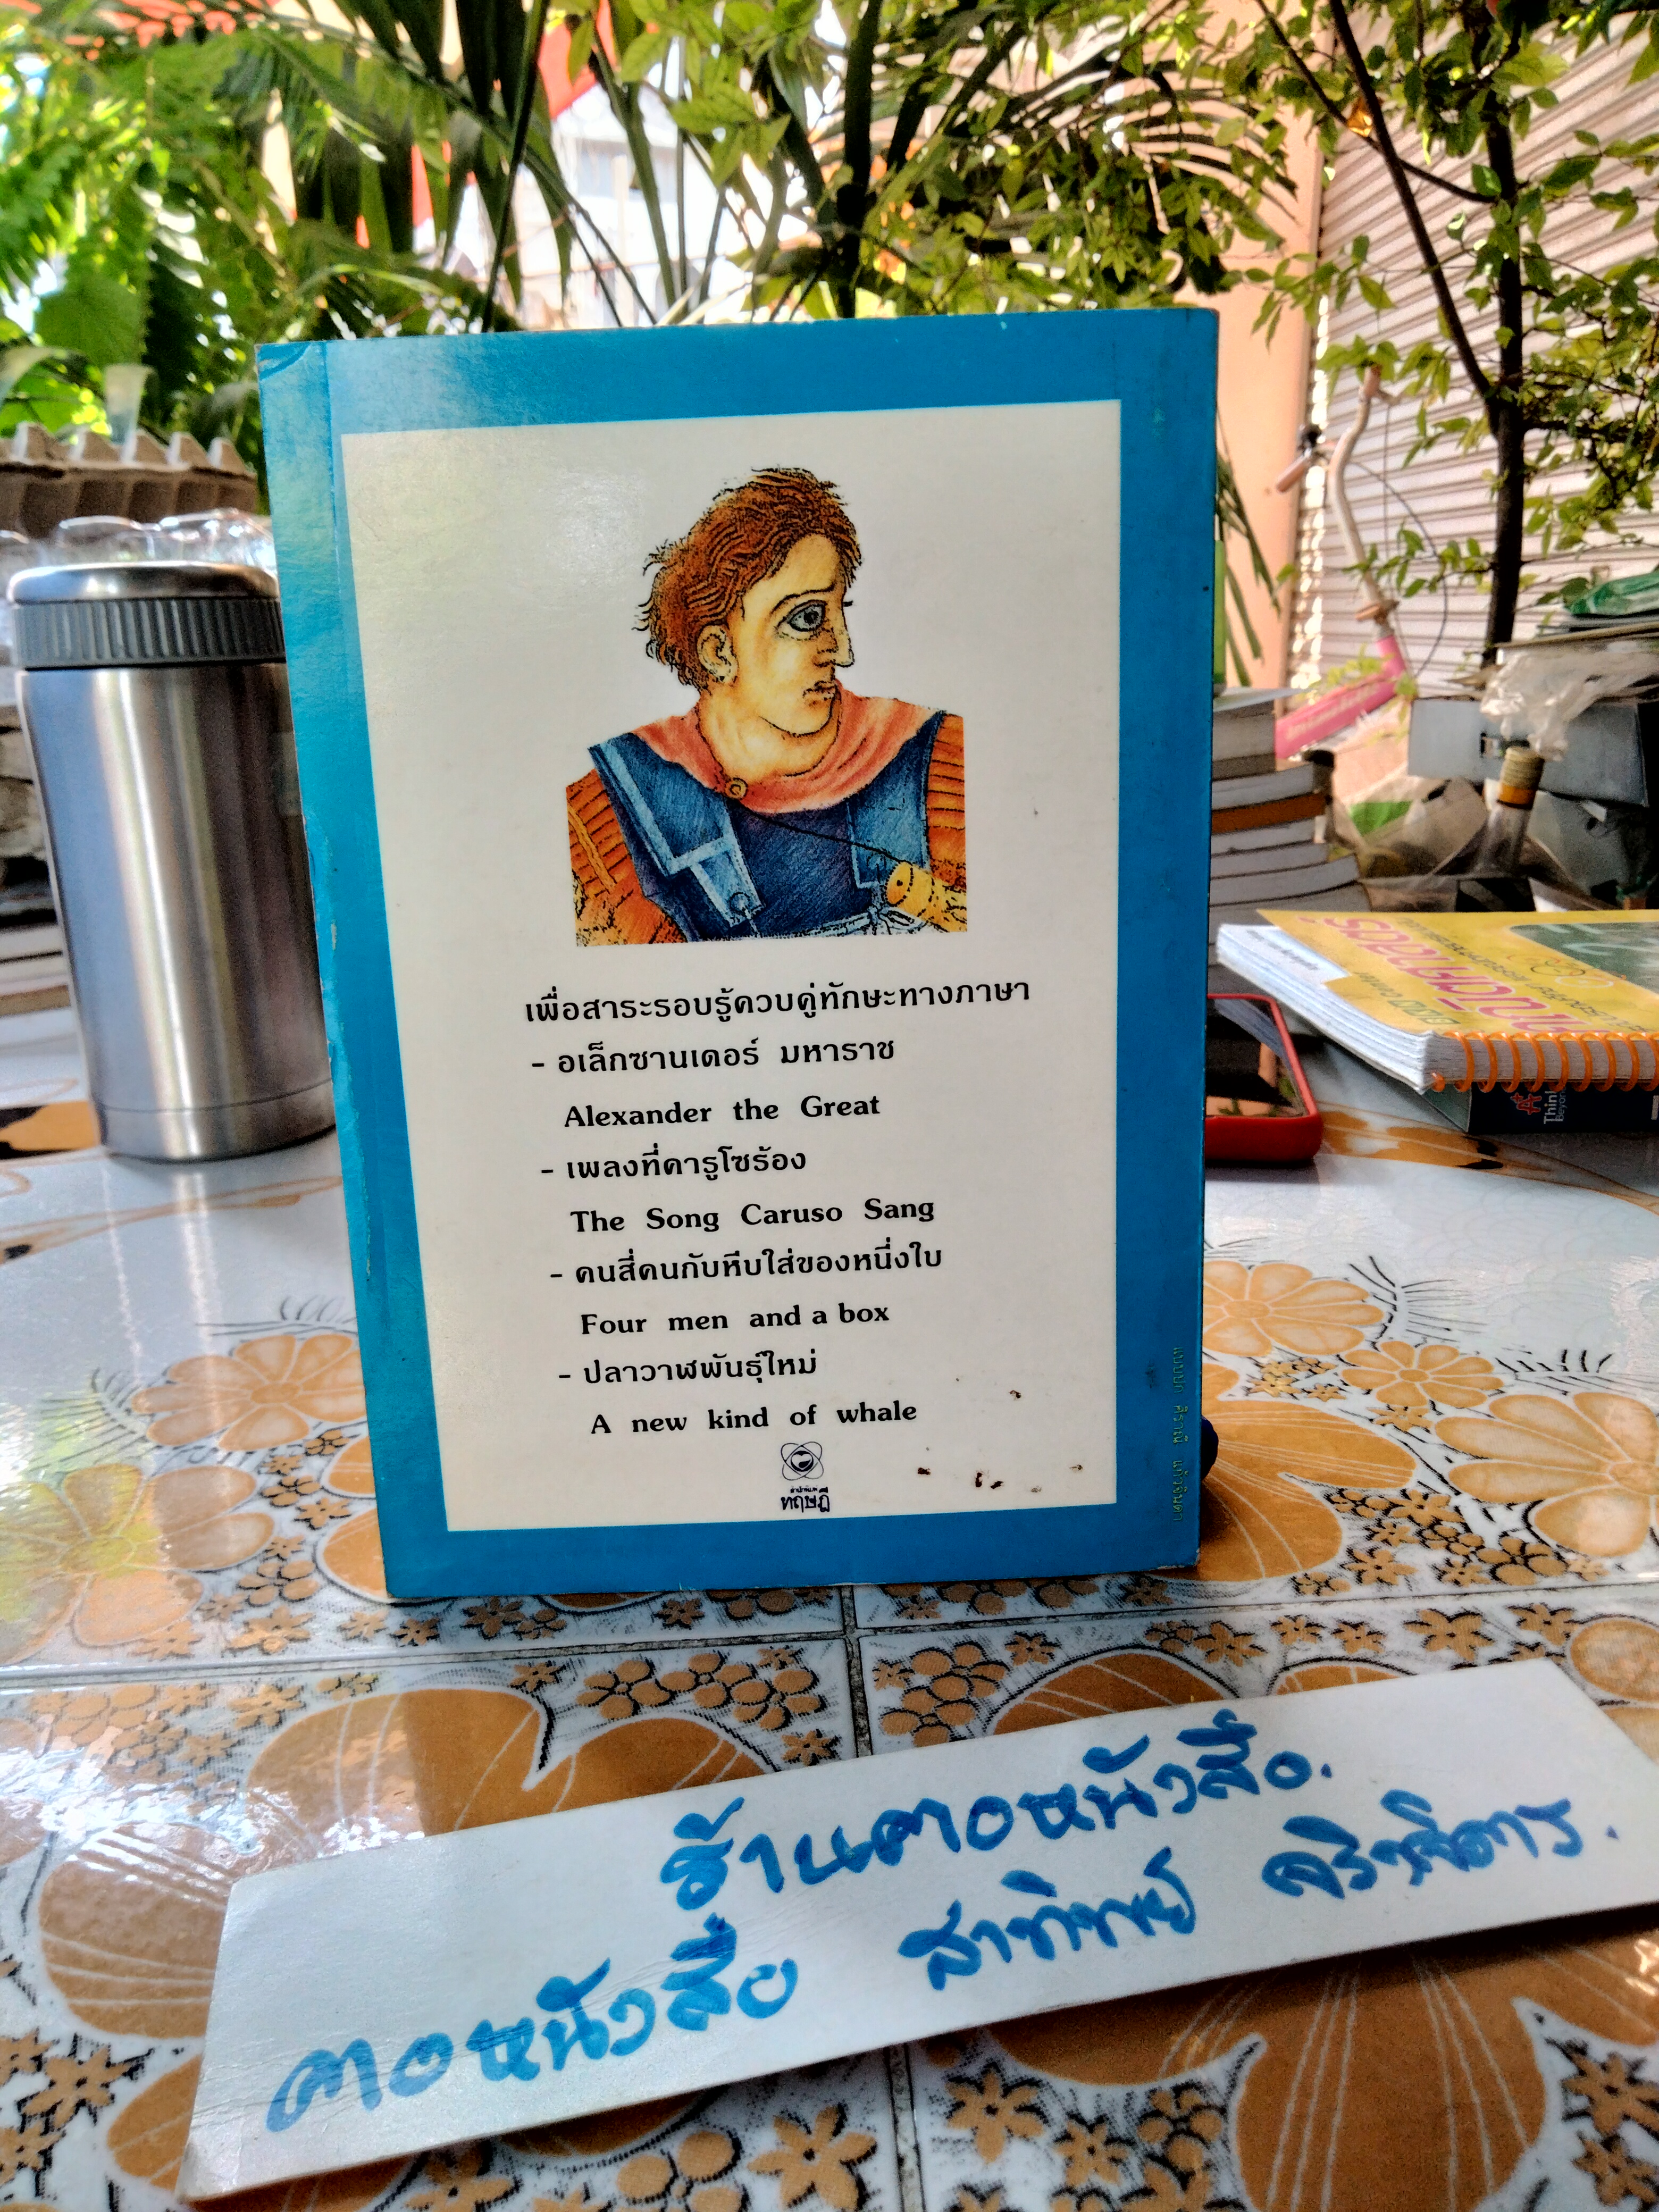 เพื่อสาระรอบรู้ควบคู่ทักษะทางภาษา
- อเล็กซานเดอร์ มหาราช
Alexander the Great
- เพลงที่คารูโซร้อง
The Song Caruso Sang
- คนสี่คนกับหีบใส่ของหนึ่งใบ
Four men and a box
- ปลาวาฬพันธุ์ใหม่
A new kind of whale
สำนักพิมพ์
ทฤษฎี
Think
Beyond
ร้านตอหนังสือ.
ตอหนังสือ